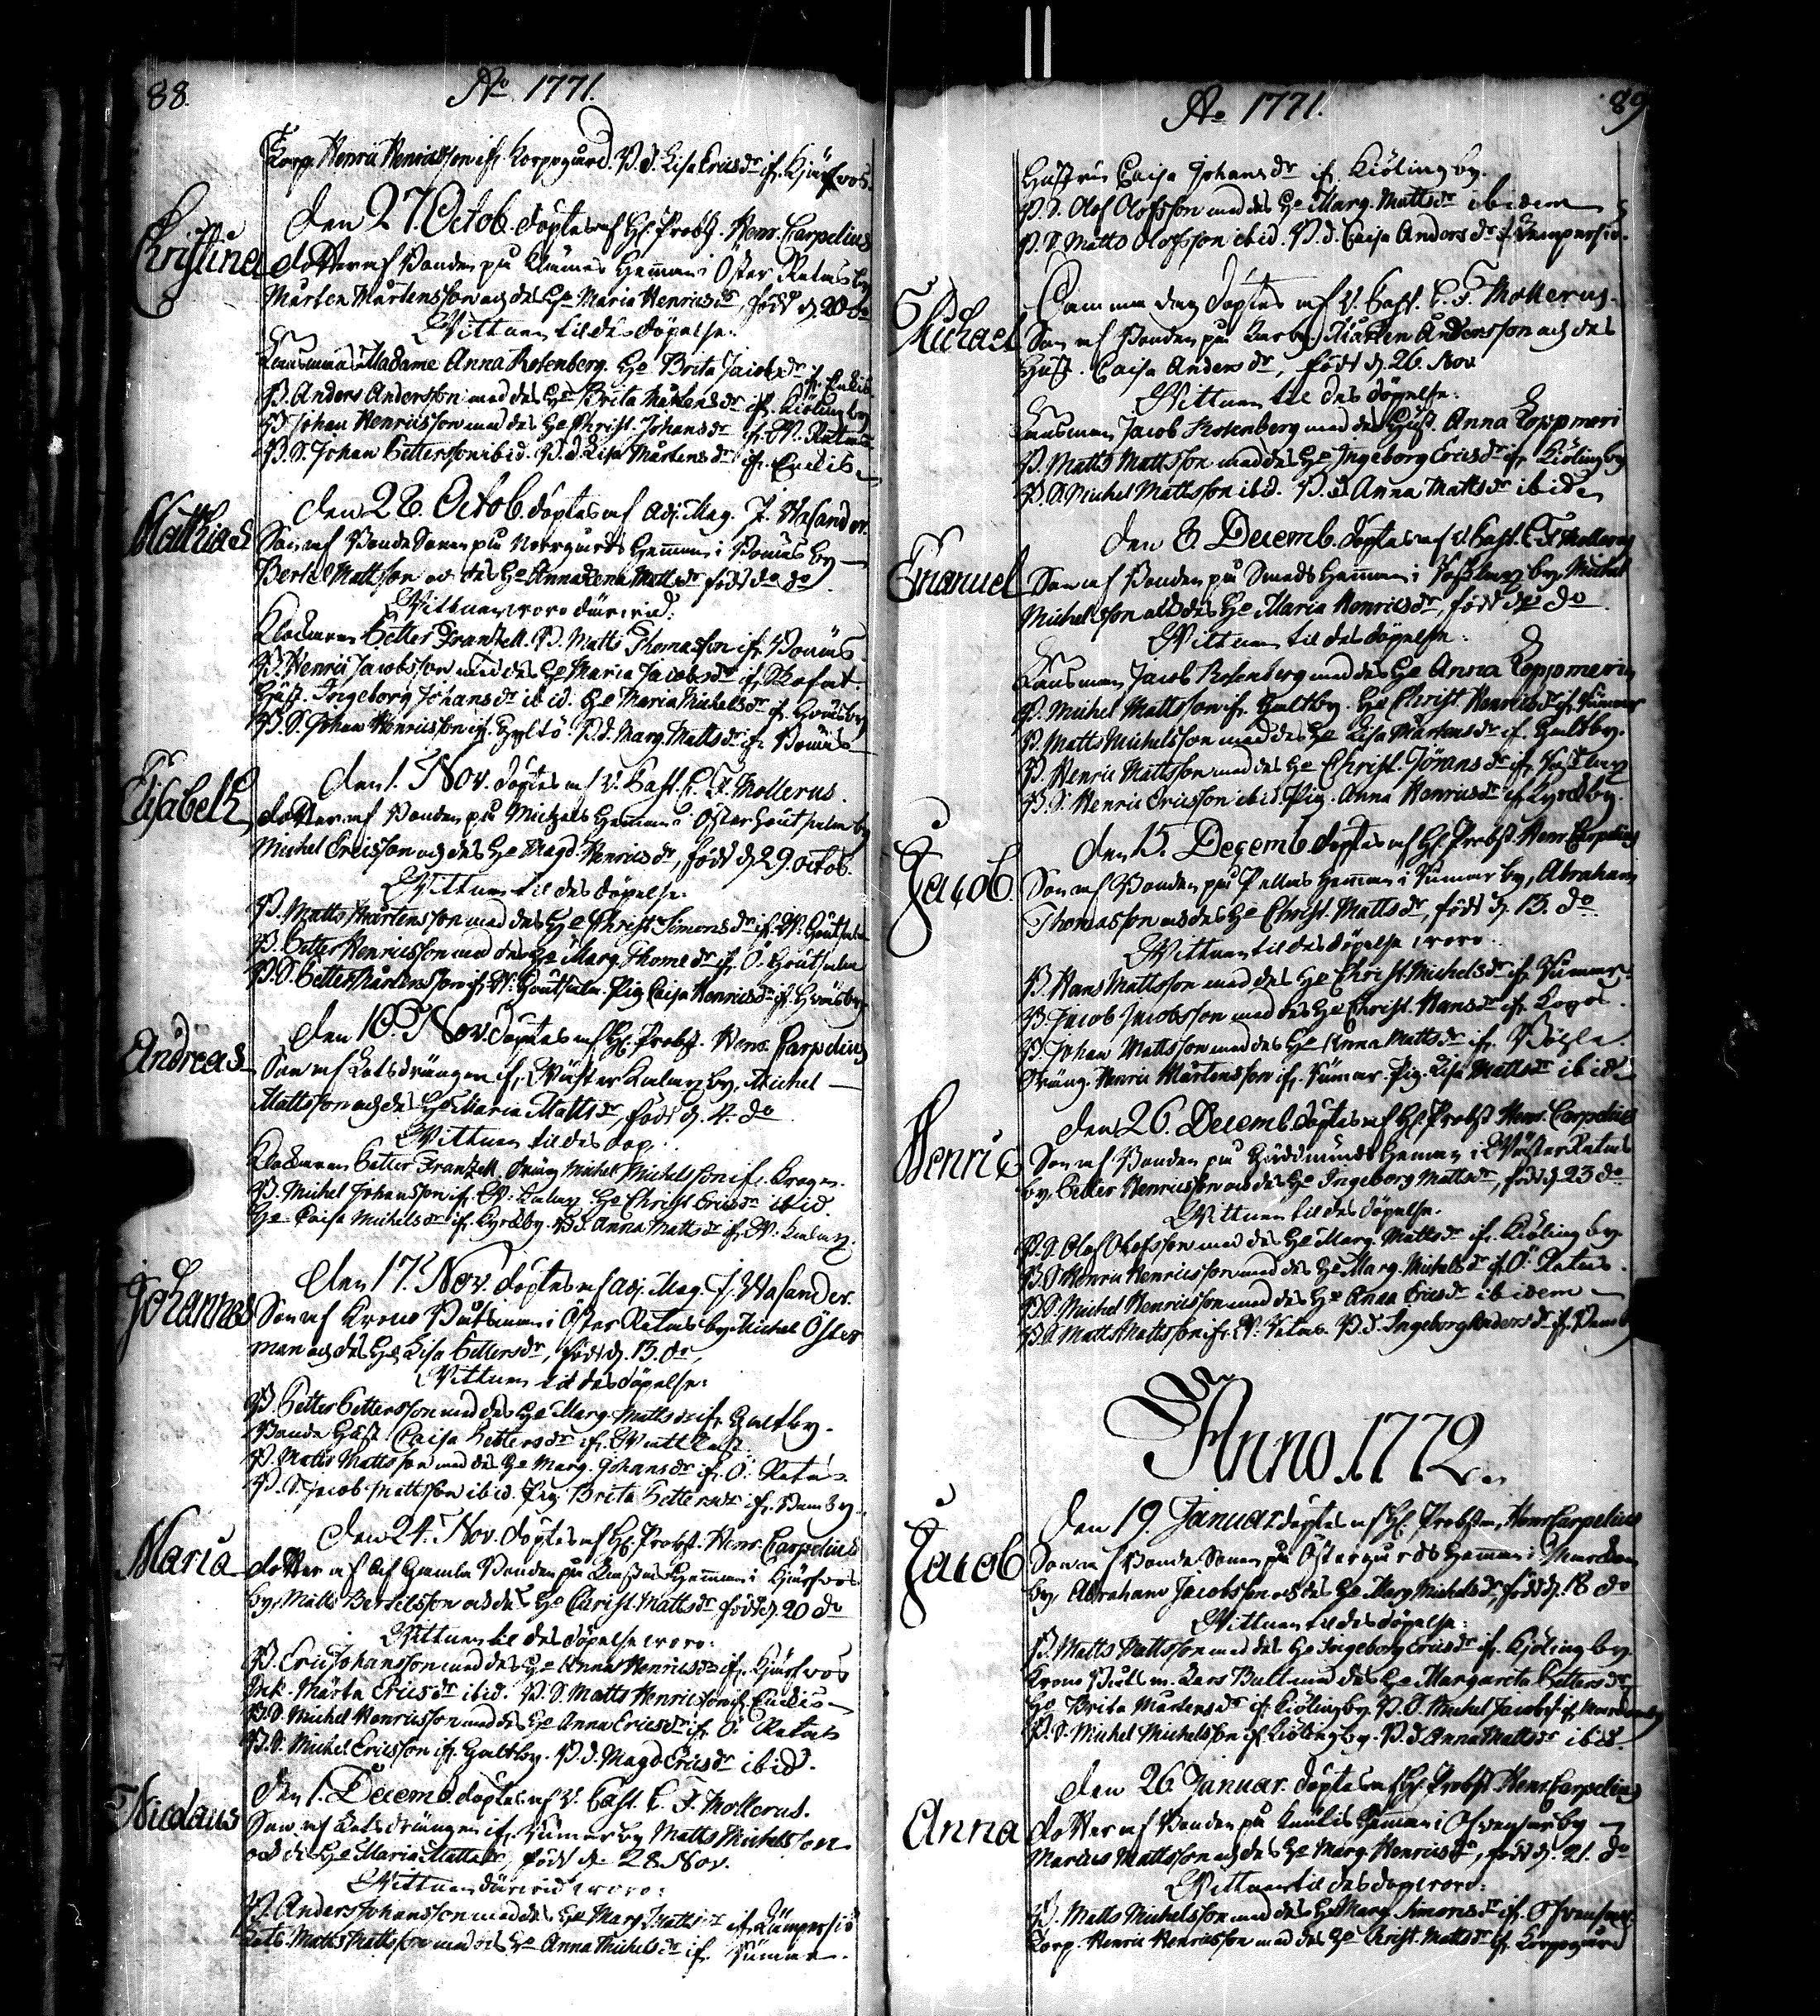 88.
Ao 1771.
Korp. Henric Henricsson ifr. Korpogård. B.d. Lisa Ericsdr ifr. Kjurfvos.
Christina
Den 27. Octob. döptes af H. Probst. Henr. Carpelius
dotter af Bonden på Hemman i Öster Retais by
Mårten Mårtensson och des He Maria Henricsdr, född d. 20 do
Wittnen til des döpelse:
Madame Anna Rosenberg. He Brita Jacobsdr
B. Anders Andersson med des He Brita Mårtensdr ifr. Kiölingby
B. Johan Henricsson med des He Christ. Johansdr ifr. W. Retais
B.S. Johan Pettersson ibid. B.d. Lisa Mårtensdr ifr. Enklis
Mathias
Den 28. Octob. döptes af Adj. Mag. J. Wasander.
Son af Bonde Sonen på Norrgårds Hemman i by
Bertel Mattsson och des He Anna Lena Mattsdr född do do
Wittnen woro därwid:
Klockaren Petter Frantzell. B. Matts Thomasson ifr.
B. Henric Jacobsson med des He Maria Jacobsdr ifr.
Hust. Ingeborg Johansdr ibid. He Maria Michelsdr ifr.
B.S. Johan Henricsson ifr. Hyltö. B.d. Marg. Mattsdr ifr.
Elisabeth
Den 1. Nov. döptes af V. Past. C. F. Mollerus.
dotter af Bonden på Michels Hemman i Öster by
Michel Ericsson och des He Magd. Henricsdr, född d. 29. octob.
Wittnen til des döpelse:
B. Matts Mårtensson med des He Christ. Simonsdr ifr. W.
B. Petter Henricsson med des He Marg. Thomsdr ifr. Ö.
B.S. Petter Mårtensson ifr. W. Pig. Caisa Henricsdr ifr.
Andreas
Den 10. Nov. döptes af H. Probst. Henr. Carpelius
Son af Lotsdrängen ifr. Wäster by, Michel
Mattsson och des He Maria Mattsdr, född d. 4. do
Wittnen til des dop:
Klockaren Petter Frantzell. Dräng Michel Michelsson ifr. Krogen.
B. Michel Johansson ifr. W. He Christ. Ericsdr ibid.
He Caisa Michelsdr ifr. Kyrckby. B.d. Anna Mattsdr ifr. W.
Johannes
Den 17. Nov. döptes af Adj. Mag. J. Wasander.
Son af Krono Båtsman i Öster Retais by Michel Öster
man och des He Lisa Pettersdr, född d. 15. do,
Wittnen til des döpelse:
B. Petter Pettersson med des He Marg. Mattsdr ifr. Galtby.
Bonde Hust. Caisa Pettersdr ifr.
B. Matts Mattsson med des He Marg. Johansdr ifr. Ö. Retais
B.S. Jacob Mattsson ibid. Pig. Brita Pettersdr ifr.
Maria
Den 24. Nov. döptes af H. Probst. Henr. Carpelius
dotter af af Gamla Bonden på Hemman i Kjurfvos
by, Matts Bertelsson och des He Christ. Mattsdr född d. 20 do
Wittnen til des döpelse woro:
B. Eric Johansson med des He Anna Henricsdr ifr. Kjurfvos
Enk. Marta Ericsdr ibid. B.S. Matts Henricsson ifr. Enklis
B.S. Michel Henricsson med des He Anna Ericsdr ifr. Ö. Retais
B.S. Michel Ericsson ifr. Galtby. B.d. Magd. Ericsdr ibid.
Nicolaus
Den 1. Decemb. döptes af V. Past. C. F. Mollerus.
Son af Lotsdrängen ifr. by Matts Michelsson
och des He Maria Mattsdr, född d. 28. Nov.
Wittnen därwid woro:
B. Anders Johansson med des He Marg. Mattsdr ifr.
Lots. Matts Mattsson med des He Anna Michelsdr ifr.
Ao 1771.
89
Hustru Caisa Johansdr ifr. Kiölingby.
B.S. Olof Olofsson med des He Marg. Mattsdr ibidem
B.S. Matts Olofsson ibid. B.d. Caisa Andersdr f.
Michael
Samma dag döptes af V. Past. C. F. Mollerus.
Son af Bonden på Mårten Andersson och des
Hust. Caisa Andersdr, född d. 26. Nov
Wittnen til des döpelse:
Jacob Rosenberg med des Hust. Anna Koppmeri
B. Matts Mattsson med des He Ingeborg Ericsdr ifr Kiölingby
B.S. Michel Mattsson ibid. B.d. Anna Mattsdr ibidem
Emanuel
Den 8. Decemb. döptes af V. Past. C. F. Mollerus
Son af Bonden på Smeds Hemman i by, Michel
Michelsson och des He Maria Henricsdr, född do
Wittnen til des döpelse:
Jacob Rosenberg med des He Anna Koppmerin
B. Michel Mattsson ifr. Galtby. He Christ. Henricsdr ifr.
B. Matts Michelsson med des He Lisa Mårtensdr ifr. Galtby.
B. Henric Mattsson med des He Christ. Jöransdr ifr.
B.S. Henric Ericsson ibid. Pig. Anna Henricsdr ifr. Kyrckby.
Jacob.
Den 15. Decemb. döptes af H. Probst Henr Carpelius
Son af Bonden på Pellas Hemman i by, Abraham
Thomasson och des He Christ. Mattsdr, född d. 13. do
Wittnen til des döpelse woro:
B. Hans Mattsson med des He Christ. Michelsdr ifr.
B. Jacob Jacobsson med des He Christ. Hansdr ifr.
B. Johan Mattsson med des He Anna Mattsdr ifr.
Dräng. Henric Mårtensson ifr. Pig. Lisa Mattsdr ibid.
Henric
Den 26. Decemb. döptes af H. Probst Henr. Carpelius
Son af Bonden på Hemman i Wäster Retais
by, Petter Henricsson och des He Ingeborg Mattsdr, född d. 23 do
Wittnen til des döpelse.
B.S. Olof Olofsson med des He Marg. Mattsdr ifr. Kiölingby
B.S. Henric Henricsson med des He Marg. Michelsdr ifr Ö. Retais.
B.S. Michel Henricsson med des He Anna Ericsdr ibidem
B.S. Matts Mattsson ifr. W. Retais. B.d. Ingeborg Andersdr ifr.
Anno 1772.
Jacob
Den 19. Januar. döptes af H. Probsten, Henr Carpelius
Son af Bonde Sonen på Östergårds Hemman i
by, Abraham Jacobsson och des He Marg Michelsdr, född d. 18 do
Wittnen til des döpelse:
B. Matts Mattsson med des He Ingeborg Ericsdr ifr. Kjölingby.
Krono Båtsm. Lars Bult med des He Margareta Pettersdr
He Brita Mårtensdr ifr. Kiölingby. B.S. Michel Jacobs
B.S. Michel Michelsson ifr Kiölingby. B.d. Anna Mattsdr ibid.
Anna
Den 26. Januar. döptes af H. Probst. Henr. Carpelius
dotter af Bonden på Hemman i by
Marcus Mattsson och des He Marg. Henricsdr, född d. 21. do
Wittnen til des dop woro:
B. Matts Michelsson med des He Marg. Simonsdr ifr.
Korp. Henric Henricsson med des He Christ. Mattsdr ifr Korpogård